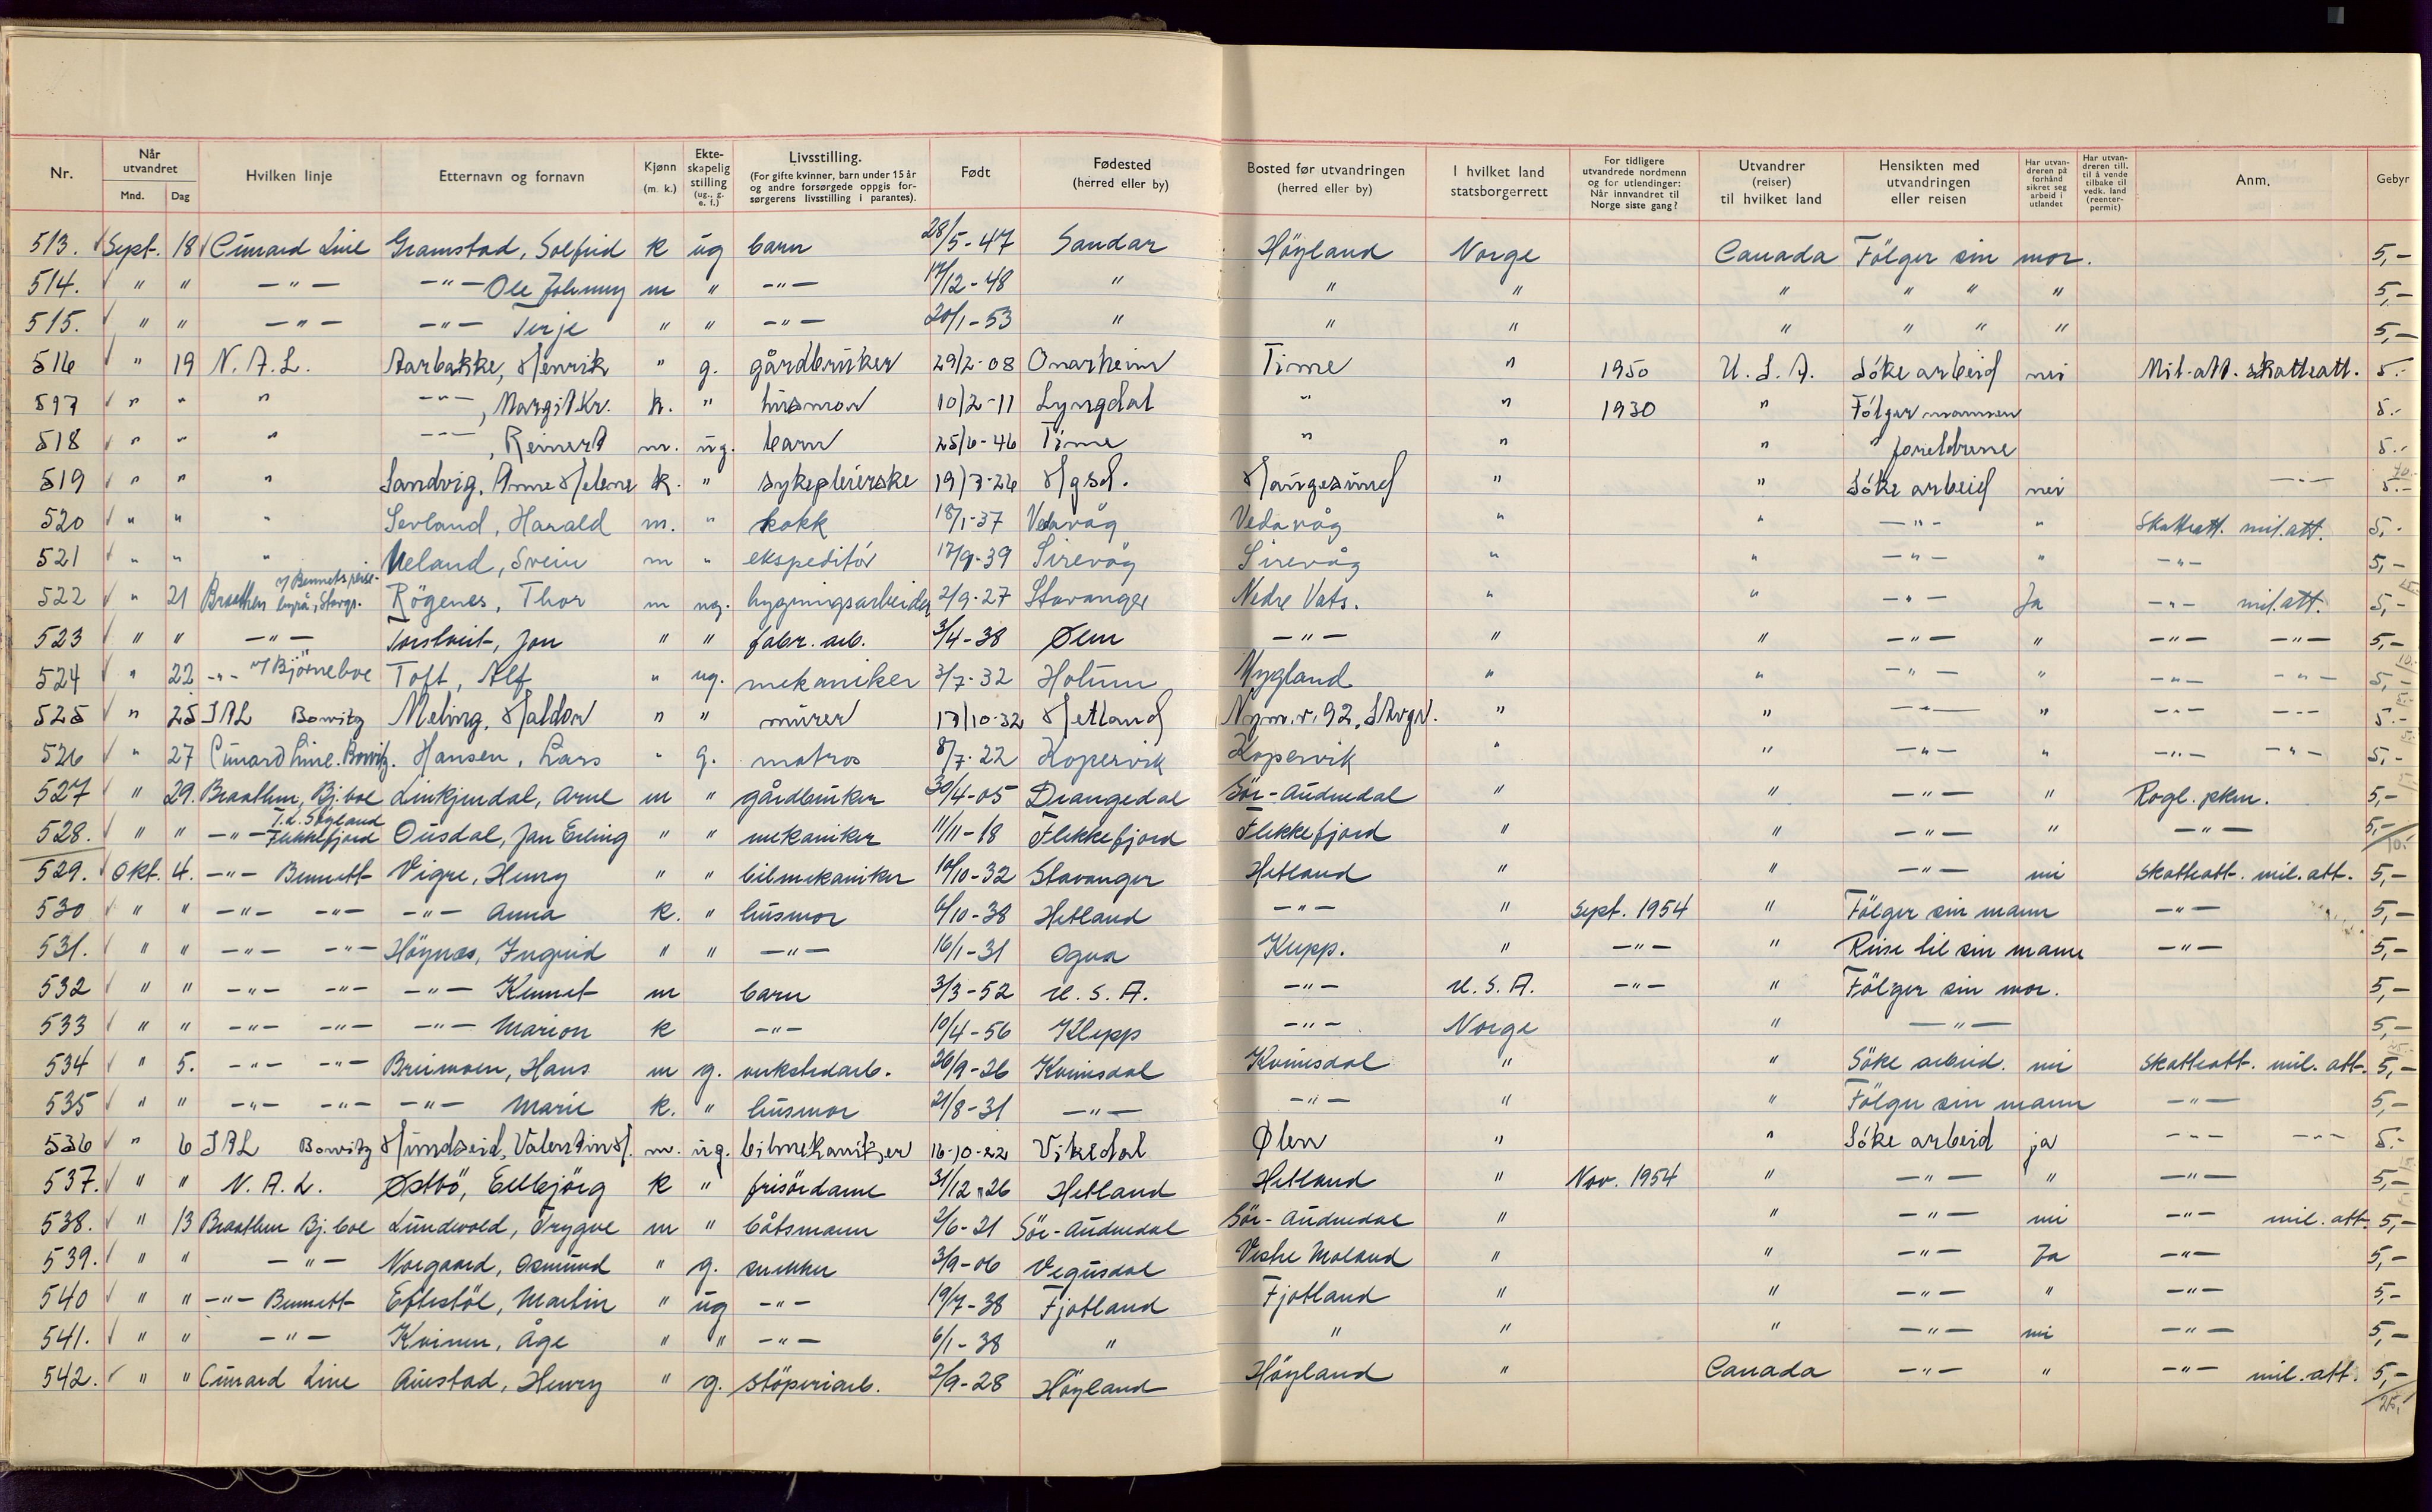 Nr. | Når utvandret Mnd. Dag | Hvilken linje | Etternavn og fornavn | Kjønn (m. k.) | Ekteskapelig stilling (ug., g. e. f.) | Livsstilling. (For gifte kvinner, barn under 15 år og andre forsørgede oppgis forsørgerens livsstilling i parantes). | Født | Fødested (herred eller by) | Bosted før utvandringen (herred eller by) | I hvilket land statsborgerrett | For tidligere utvandrede nordmenn og for utlendinger: Når innvandret til Norge siste gang? | Utvandrer (reiser) til hvilket land | Hensikten med utvandringen eller reisen | Har utvandreren på forhånd sikret seg arbeid i utlandet | Har utvandreren till. til å vende tilbake til vedk. land (reenterpermit) | Anm. | Gebyr
513. Sept. 18 Cunard Line Gramstad, Solfrid k ug barn 28/5-47 Sandar Höyland Norge Canada Fölger sin mor. 5,-
514. " " -"- -"- Ole Johnny m " -"- 17/12-48 " " " " " " " 5,-
515. " " -"- -"- Terje " " -"- 20/1-53 " " " " " " " 5,-
516 " 19 N.A.L. Aarbakke, Henrik " g. gårdbruker 29/2-08 Onarheim Time " 1950 U.S.A. Söke arbeid nei Mil.att. skatteatt. 5.-
517 " " " -"-, Margit Kr. k. " husmor 10/2-11 Lyngdal " " 1930 " Fölger mannen 5.-
518 " " " -"-, Reinert m. ug. barn 25/6-46 Time " " " " foreldrene 5.-
519 " " " Sandvig, Anne Helene k. " sykepleierske 19/7-26 Hgsd. Haugesund " " Söke arbeid nei -"- 5.-
520 " " " Sevland, Harald m. " kokk 18/1-37 Vedavåg Vedavåg " " -"- " Skatteatt. mil.att. 5,-
521 " " " Ueland, Svein m " ekspeditör 17/9-39 Sirevåg Sirevåg " " -"- " -"- 5,-
522 " 21 Braathen v/Bennets reisebyrå, Stavgr. Rögenes, Thor m ug. bygningsarbeider 2/9-27 Stavanger Nedre Vats. " " -"- Ja -"- mil.att. 5,-
523 " " -"- Torstveit, Jon " " fabr. arb. 3/4-38 Ølen -"- " " -"- " -"- -"- 5,-
524 " 22 -"- v/Bjørneboe Toft, Alf " ug. mekaniker 3/7-32 Holum Mygland " " -"- " -"- -"- 5,-
525 " 25 IAL Bowitz Meling, Haldor " " murer 17/10-32 Hetland N.gm.v. 92, Stavgr. " " -"- " -"- -"- 5.-
526 " 27 Cunard Line. Bowitz. Hansen, Lars " g. matros 8/7-22 Kopervik Kopervik " " -"- " -"- -"- 5,-
527 " 29. Braathen, Bj.boe Linkjendal, Arne m " gårdbruker 30/4-05 Drangedal Sör-Audnedal " " -"- " Rogl. pkm. 5,-
528. " " -"- T.L. Sögland Flekkefjord Ousdal, Jan Erling " " mekaniker 11/11-18 Flekkefjord Flekkefjord " " -"- " -"- 5,-
10.-
529. Okt. 4. -"- Bennett Vigre, Henry " " bilmekaniker 10/10-32 Stavanger Hetland " " -"- nei Skatteatt. mil.att. 5,-
530 " " -"- -"- -"- Anna k. " husmor 6/10-38 Hetland -"- " Sept. 1954 " Fölger sin mann -"- 5,-
531. " " -"- -"- Höynæs, Ingrid " " -"- 16/1-31 Ogna Klepp. " -"- " Reise til sin mann -"- 5,-
532 " " -"- -"- -"- Kennet m barn 3/3-52 U.S.A. -"- U.S.A. -"- " Fölger sin mor. 5,-
533 " " -"- -"- -"- Marion k -"- 10/4-56 Klepp -"- Norge " -"- 5,-
534 " 5. -"- -"- Brumoen, Hans m g. verkstedarb. 26/9-26 Kvinesdal Kvinesdal " " Söke arbeid. nei Skatteatt. mil.att. 5,-
535 " " -"- -"- -"- Marie k. " husmor 21/8-31 -"- -"- " " Fölger sin mann -"- 5,-
536 " 6 IAL Bowitz Hundseid, Valentin H. m. ug. bilmekaniker 16-10-22 Vikedal Ølen " " Söke arbeid ja -"- -"- 5.-
537. " " N.A.L. Østbö, Ellbjörg k " frisördame 31/12-26 Hetland Hetland " Nov. 1954 " -"- " -"- 5,-
538. " 13 Braathen Bj.boe Lundevold, Trygve m " båtsmann 2/6-21 Sör-Audnedal Sör-Audnedal " " -"- nei -"- mil.att. 5,-
539. " " -"- Norgaard, Osmund " g. snekker 3/9-06 Vegusdal Vestre Moland " " -"- Ja -"- 5,-
540 " " -"- Bennett Eftestöl, Martin " ug -"- 19/7-38 Fjotland Fjotland " " -"- " -"- 5,-
541. " " -"- Kvinen, Åge " " -"- 6/1-38 " " " " -"- nei -"- 5,-
542. " " Cunard Line Austad, Henry " g. Stöperiarb. 2/9-28 Höyland Höyland " Canada -"- " -"- mil.att. 5,-
25,-